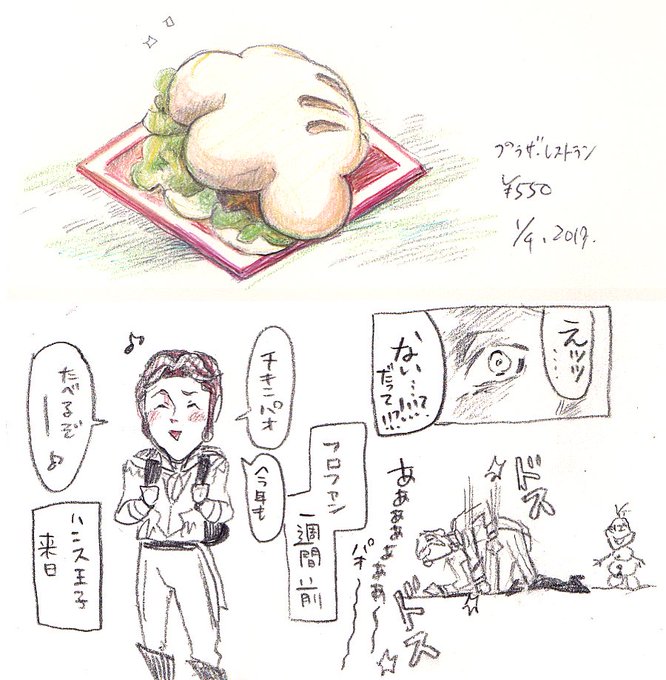 プラザ・レストラン
¥550
1/9. 2017.
フロファン
一週間前
チキンパオ
今年も
たべるぞー♪
ハンス王子
来日
えッッ…
ない…!?
だって!!?
ドス
ああああぁぁぁ〜
パオ〜〜
ドス